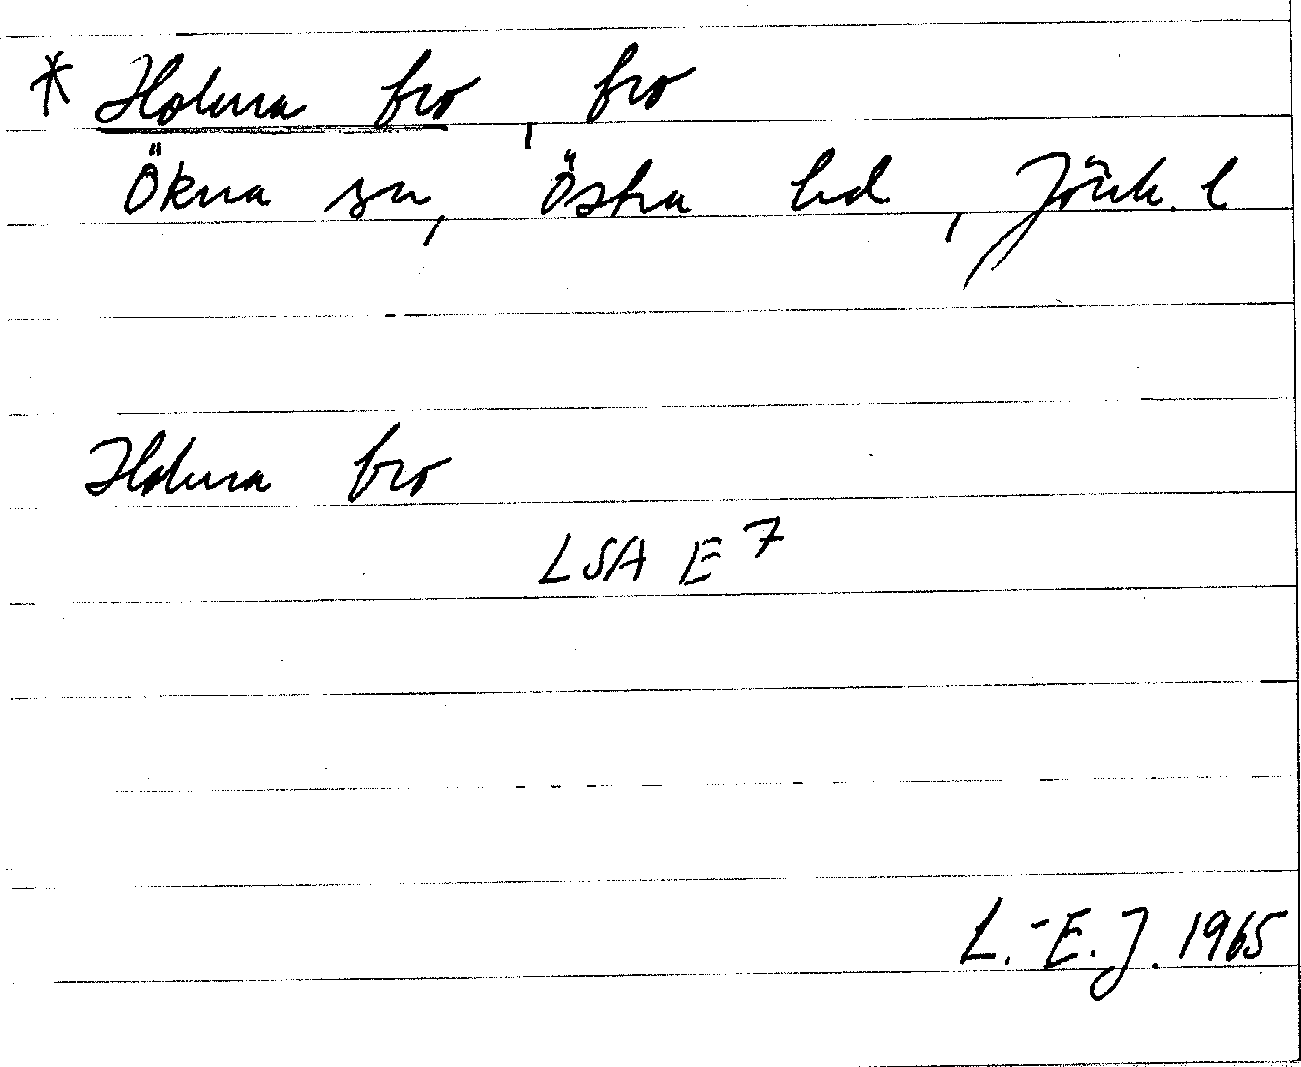 * Holma bro, bro
Ökna sn, Östra hd, Jönk. l
Holma bro
LSA E7
L.-E.J. 1965